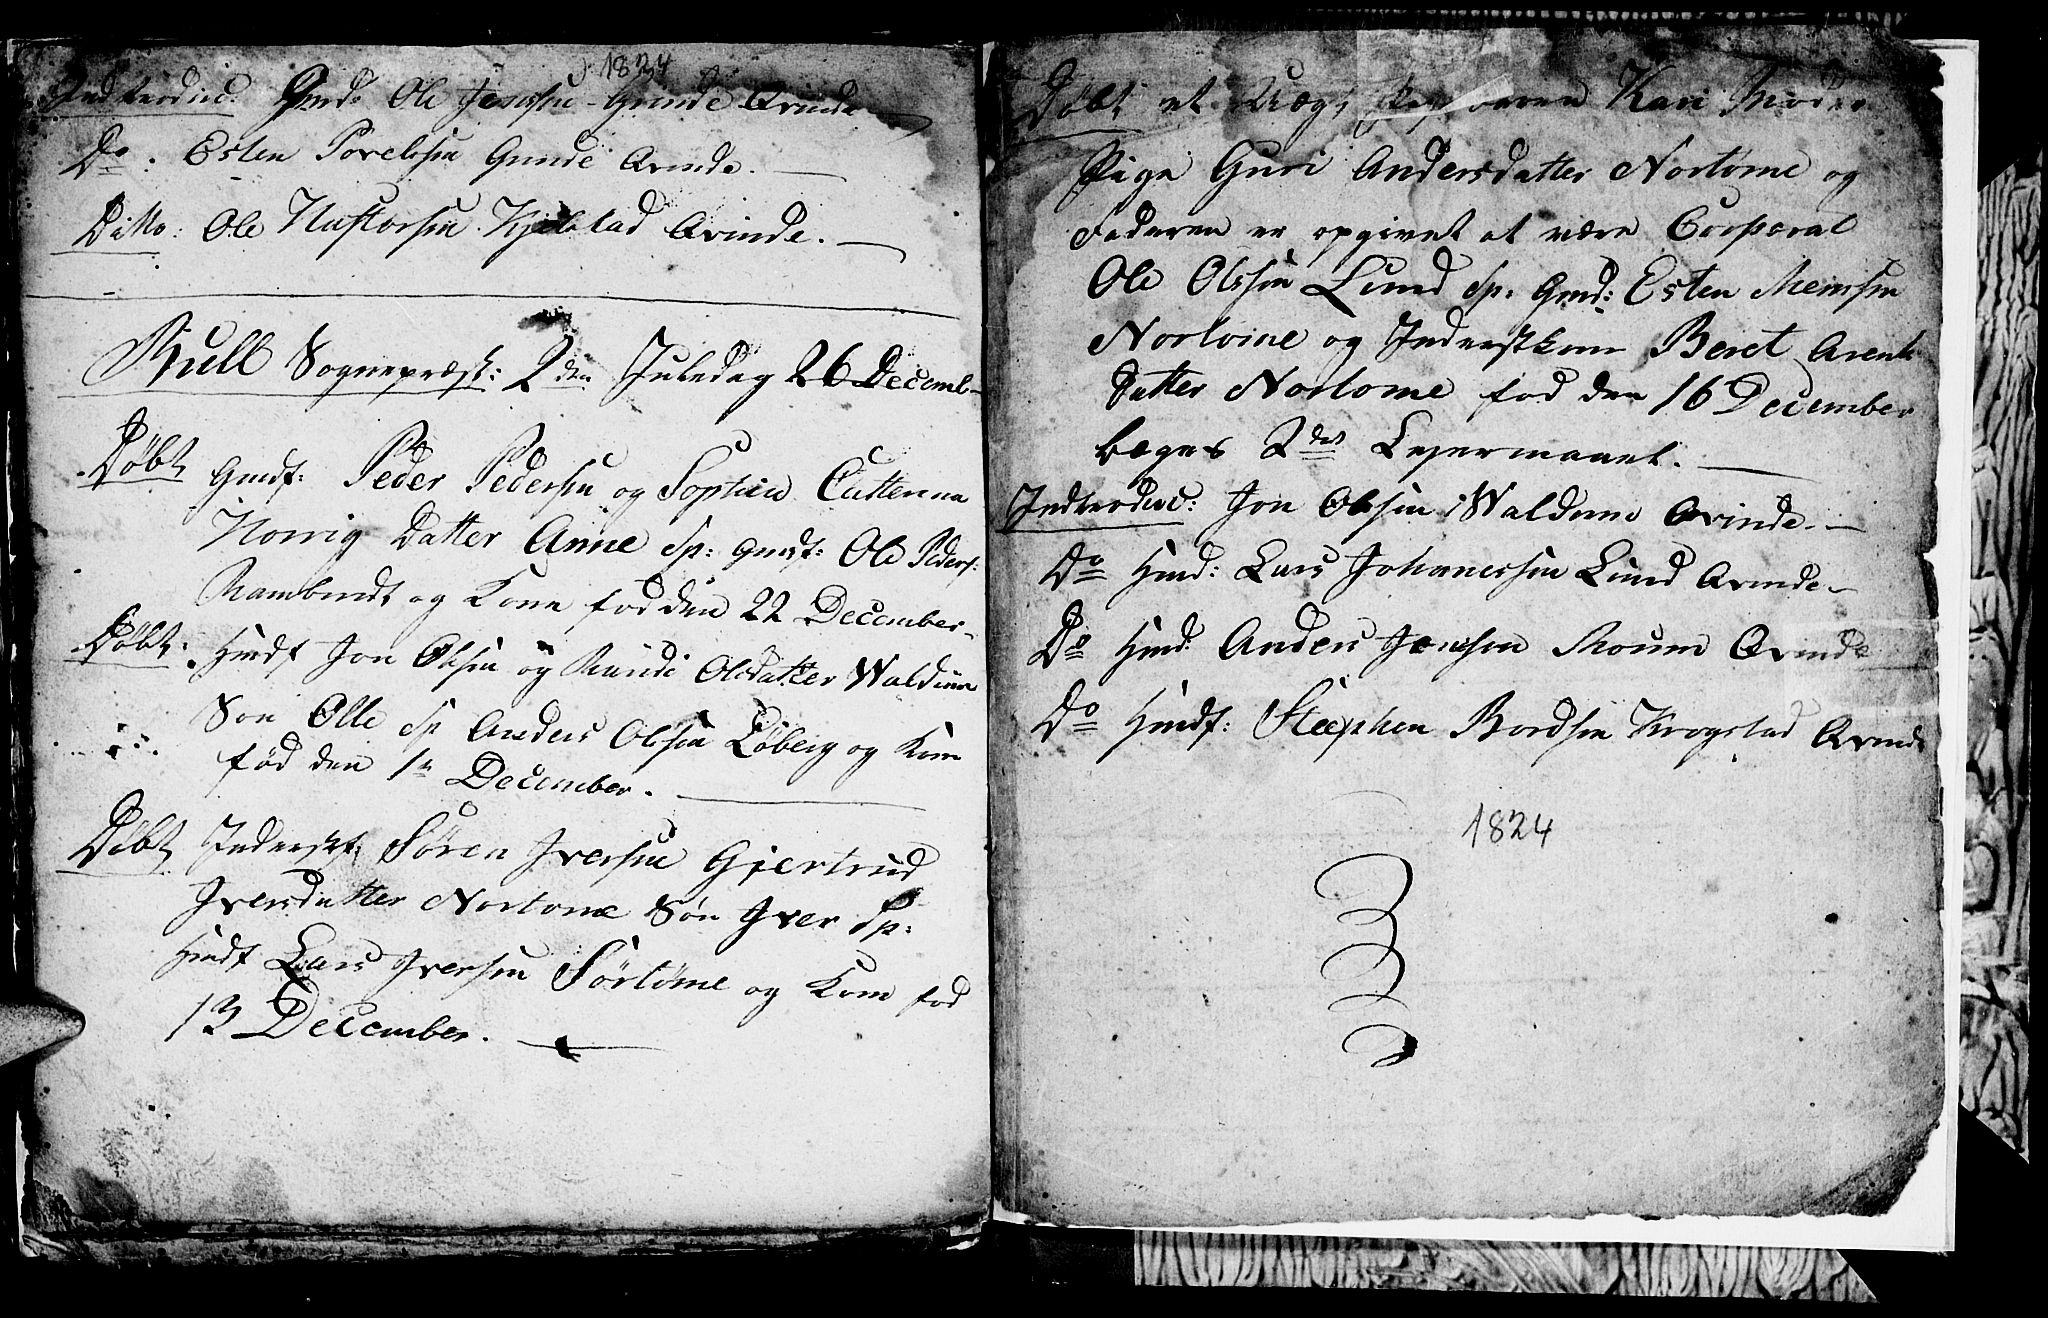 1824
Indtrodic: Gmd: Ole Jensen Grinde Qvinde
Do. Esten Povelsen Grinde Qvinde.
Ditto: Ole Hastorsen Kjelstad Qvinde.
Bull Sognepræst: 2den Juledag 26 Decemb
Døbt Gmdf: Peder Pedersen og Sophia Catterina
Horrig Datter Anne Sp: Gmdf: Ole Peders:
Rambendt og Kone fød den 22 December
Døbt: Hmdf Jon Olssen og Randi Olsdatter Waldum
Søn Olle Sp Anders Olssen Løberg og Kone
fød den 1n December.
Døbt Inderst: Søren Iversen Gjertrud
Iversdatter Nortome Søn Iver Sp:
Hmdf Lars Iversen Sørtøme og Kone fød
13 December.
Døbt et Uægt Kari Moder
Pige Guri Andersdatter Nortøme og
Faderen er opgivet at være Corporal
Ole Olssen Lund Sp: Gmd: Esten
Nortome og Inderstkone Beret Arent
Datter Nortome fød den 16 December
beges 2det Lejermaael.
Indtrodic: Jon Olssen Waldum Qvinde.
Do Hmd: Lars Johanessen Lund Qvinde
Do Hmd: Anders Jensen Moum Qvinde
Do Hmdf: Steephen Bordsen Krogstad Qvinde
1824